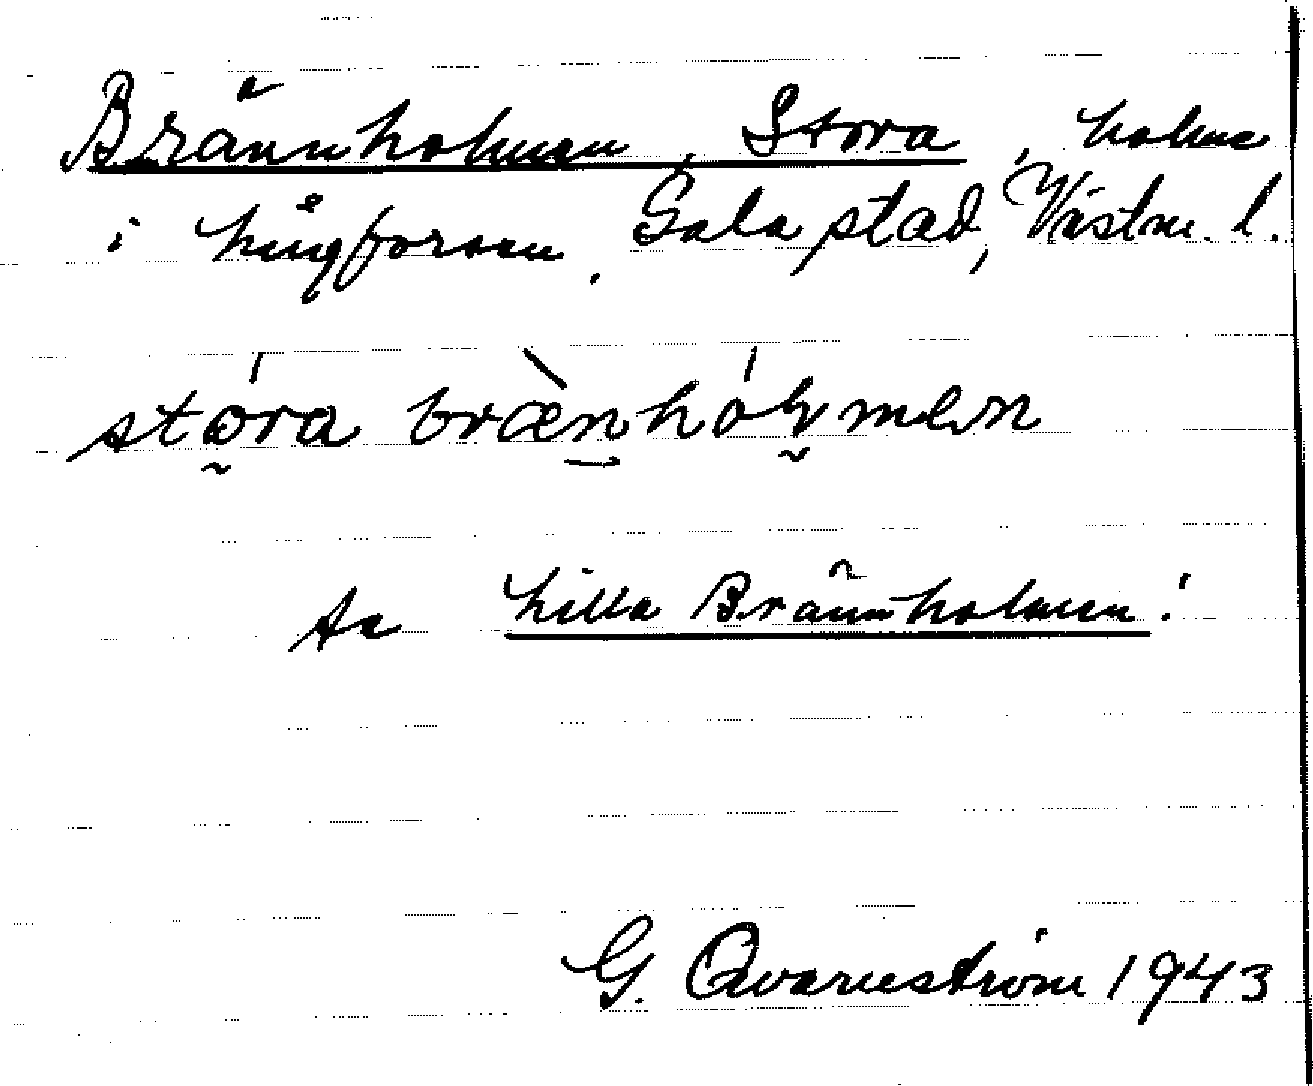 Brännholmen, Stora, holme
i Långforsen. Sala stad, Västm. l.
stóra brænhólmen
Se Lilla Brännholmen!
G. Qvarneström 1943